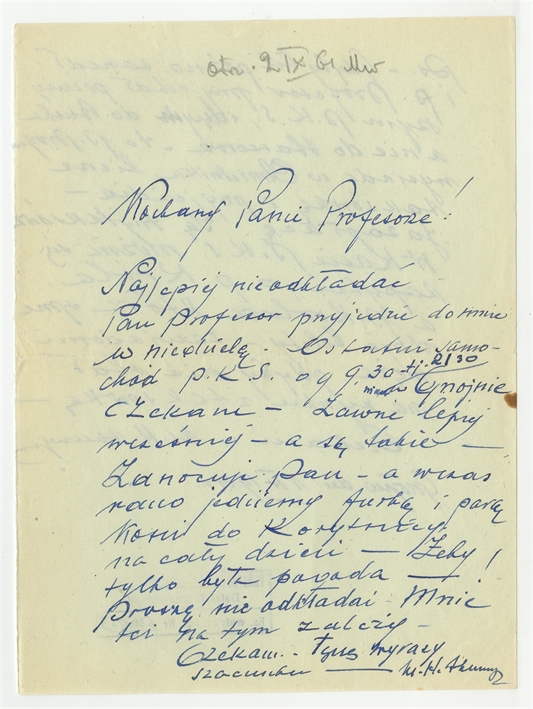 otrz. 2 IX 61 MW
Kochany Panie Profesorze!
Najlepiej nieodkładać
Pan Profesor przyjedzie do mnie
w niedzielę. Ostatni samo-
chód P.K.S. o g 9.30 - tj. 21/30
w Gnojnie
Czekam — Zawsze lepiej
wcześniej — a są takie —
Zanocuje Pan — a wczas
rano jedziemy furką i parą
koni do Korytnicy
na cały dzień — Żeby
tylko była pogoda — !
Proszę nie odkładać — Mnie
też na tym zależy —
Czekam. — Łączę wyrazy
szacunku —